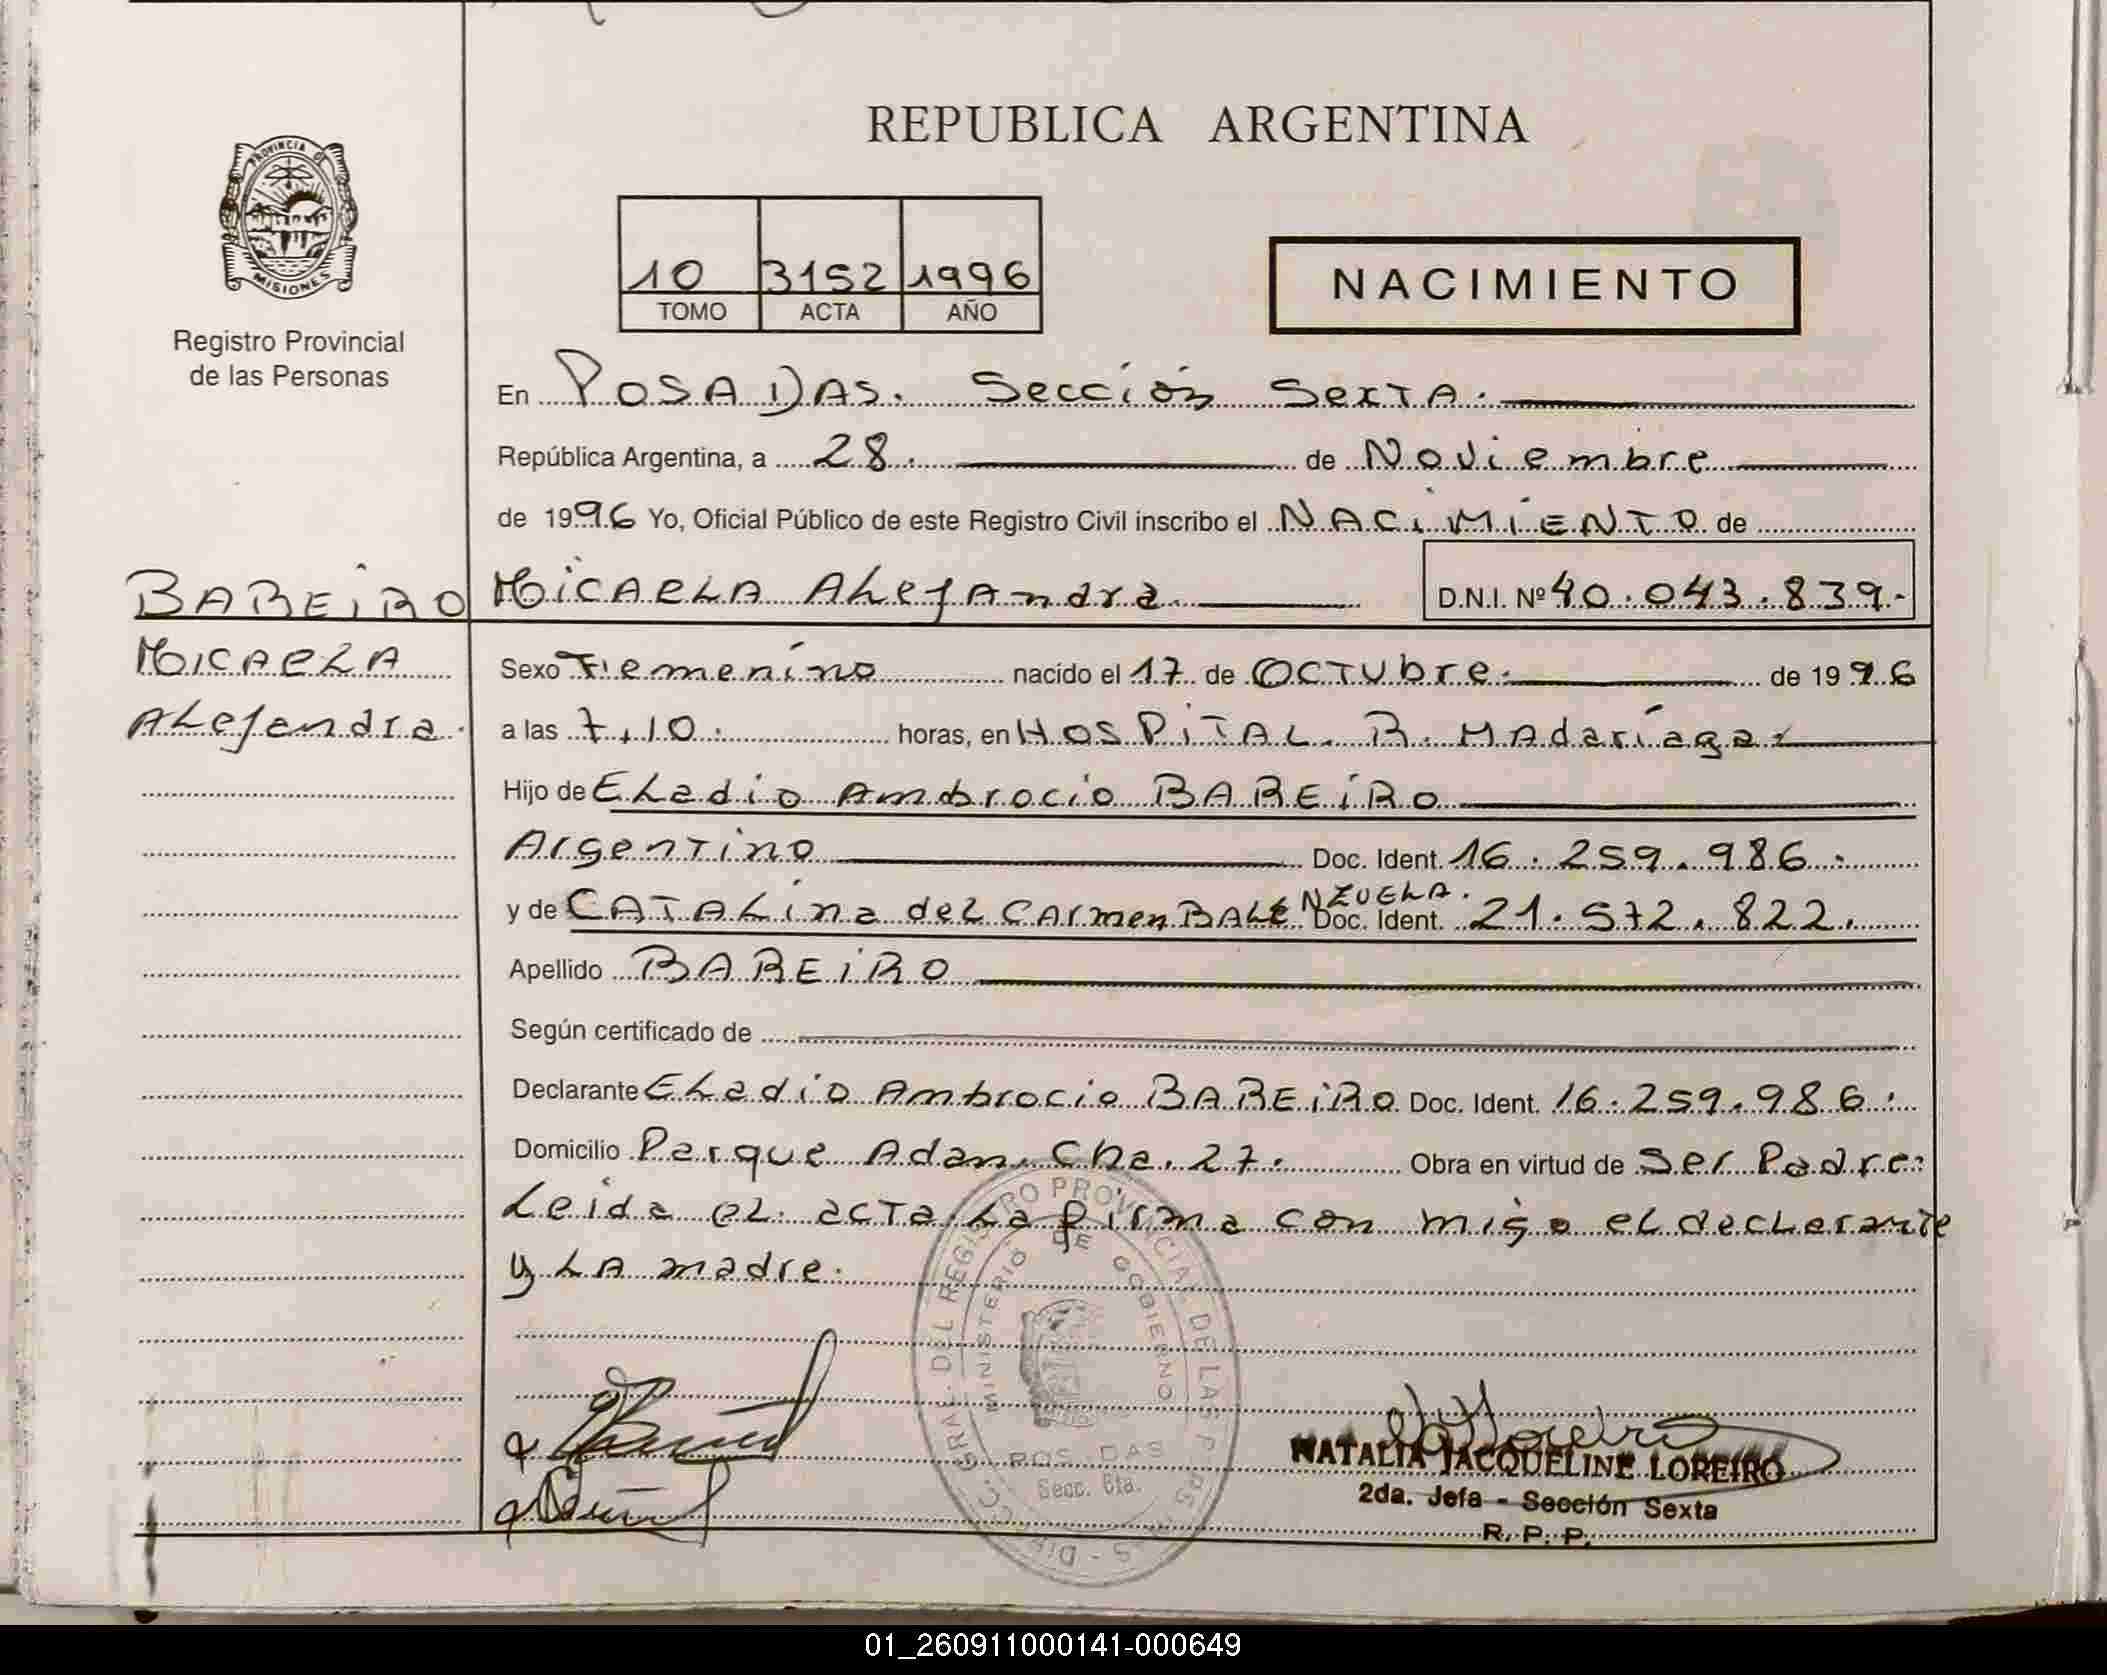 REPUBLICA ARGENTINA
PROVINCIA DE
MISIONES
Registro Provincial
de las Personas
10 3152 1996
TOMO ACTA AÑO
NACIMIENTO
En POSADAS. Sección Sexta.
República Argentina, a 28. de Noviembre
de 1996 Yo, Oficial Público de este Registro Civil inscribo el NACIMIENTO de
BAREIRO
MICAELA Alejandra
D.N.I. Nº 40.043.839.-
MICAELA
Alejandra.
Sexo Femenino nacido el 17 de OCTUbre. de 1996
a las 7,10. horas, en HOSPITAL. R. MAdariaga.
Hijo de Eladio Ambrocio BAREIRO
Argentino Doc. Ident. 16.259.986.
y de CATALina del CArmen BALENZUELA. Doc. Ident. 21.572.822.
Apellido BAREIRO
Según certificado de
Declarante Eladio Ambrocio BAREIRO Doc. Ident. 16.259.986.
Domicilio Parque Adam. Cha. 27. Obra en virtud de Ser Padre.
Leida el acta. La firma con migo el declarante
y LA madre.
DIRECC. GRAL. DEL REGISTRO PROVINCIAL DE LAS PERSONAS
MINISTERIO DE GOBIERNO
POSADAS
Secc. 6ta.
NATALIA JACQUELINE LOREIRO
2da. Jefa - Sección Sexta
R. P. P.
01_260911000141-000649